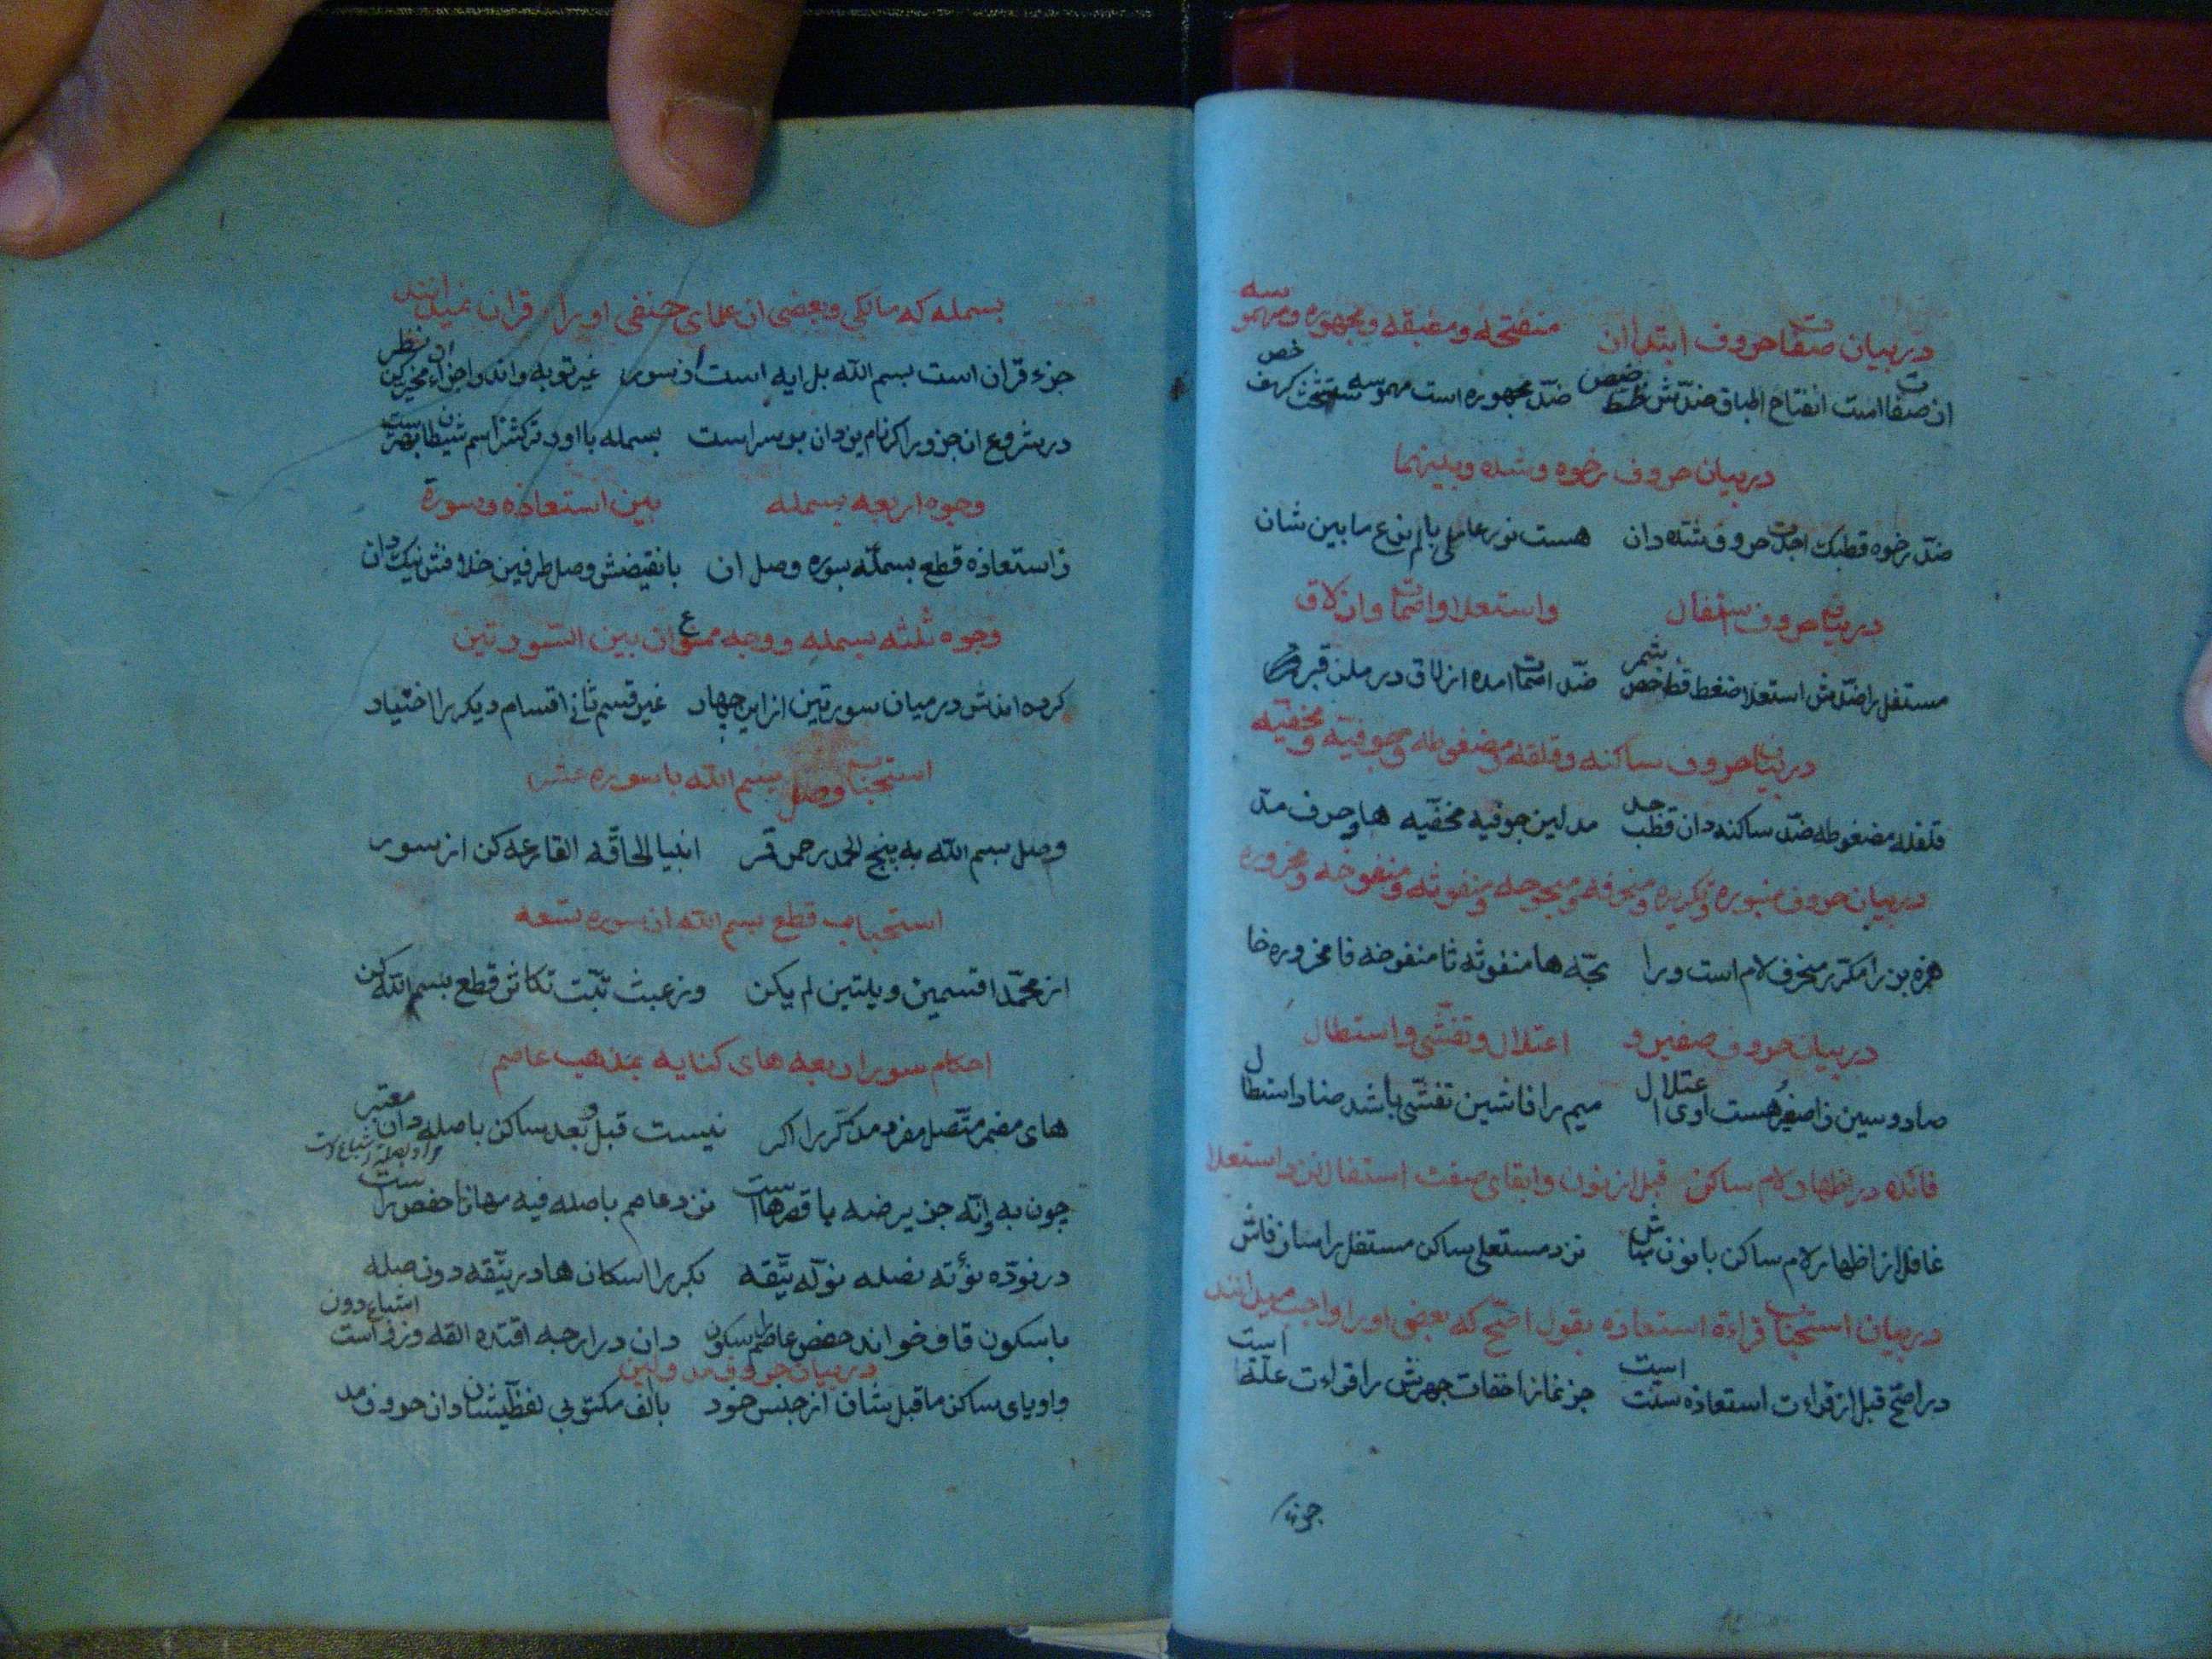 در بیان صفات حروف ابتدا ان منفتحه و مطبقه و مجهوره و مهموسه
از صفات است انفتاح اطباق ضدّش ضدّ مجهوره است مهموسه ستشحثک خصف
در بیان حروف رخوه و شده و بینهما
ضدّ رخوه قطبک اجدت حروف شده دان هست نور عاملی یالم نوع مابین شان
در بیان حروف استفال و استعلا و اصمات و ازلاق
مستفل را ضدّش استعلا ضغط قظ خص ضدّ اصمات امده ازلاق در ملن
در بیان حروف ساکنه و قلقه و مضغوطه و جوفیه و مخفیه
قلقله مضغوطه ضدّ ساکنه دان قطب جد مد لین جوفیه مخفیه ها و حرف مد
در بیان حروف منبوره و مکرره و منحرفه و مبحوحه و منفوثه و منفوخه و مخروره
همزه بن را مکرر منحرف لام است و را بحّه ها منفوثه ثا منفوخه فا مخروره خا
در بیان حروف صفیر و اعتلال و تفشّی و استطال
صاد و سین زا صفیر هست اوی اعتلال میم را فا شین تفشّی باشد ضاد استطال
فائده در اظهار لام ساکن قبل از نون و ابقای صفت استفال نزد استعلا
غافل از اظهار لام ساکن با نون مباش نزد مستعلی ساکن مستفل را فاش
در بیان استحباب قراءة استعاذه بقول اصح که بعضی او را واجب میدانند
در اصحّ قبل از قراءت استعاذه سنّت است جز نماز اخفات جهرش را قراءت علّة است
بسمله که مالکی و بعضی از علمای حنفی او را از قران نمیدانند
جزء قران است بسم الله بل ایه است از سور غیر توبه واند و اجزاء مخیّر کن نظر
در شروع از جزو را کز نام یزدان بر سر است بسمله با او و ترکش ز اسم شیطان
وجوه اربعه بسمله بین استعاذه و سورة
ز استعاذه قطع بسمله بسوره وصل ان با نقیضش وصل طرفین خلافش نیک دان
وجوه ثلثه بسمله و وجه ممنوع ان بین السورتین
کرده اندش در میان سورتین از این چهار غیر قسم ثانی اقسام دیگر را اختیار
استحباب وصل بسم الله با سوره عشر
وصل بسم الله به پنج الحمد رحمن قر انبیا الحاقّه القارعه کن از سور
استحباب قطع بسم الله از سوره تسعه
از محمّد اقسمین ویلتین لم یکن وز عبث تبّت تکاثر قطع بسم الله کن
احکام سور اربعه های کنایه بمذهب عاصم
های مضمر متّصل مفرد مذکّر را اگر نیست قبل و بعد ساکن با صله دان معتبر
چون به و انّه جز یرضه با قصر هاست نزد عاصم با صله فیه مهانا حفص راست
در نودّه نؤته نصله نولّه یتّقه بکر را اسکان ها در یتّقه دون صله
با سکون قاف خواند حفص عاصم دان در ارجه اقتده القه
در بیان حروف مد و لین
واو و یای ساکن ماقبل شان از جنس خود با الف مکتوبی لفظیشان دان حروف مد